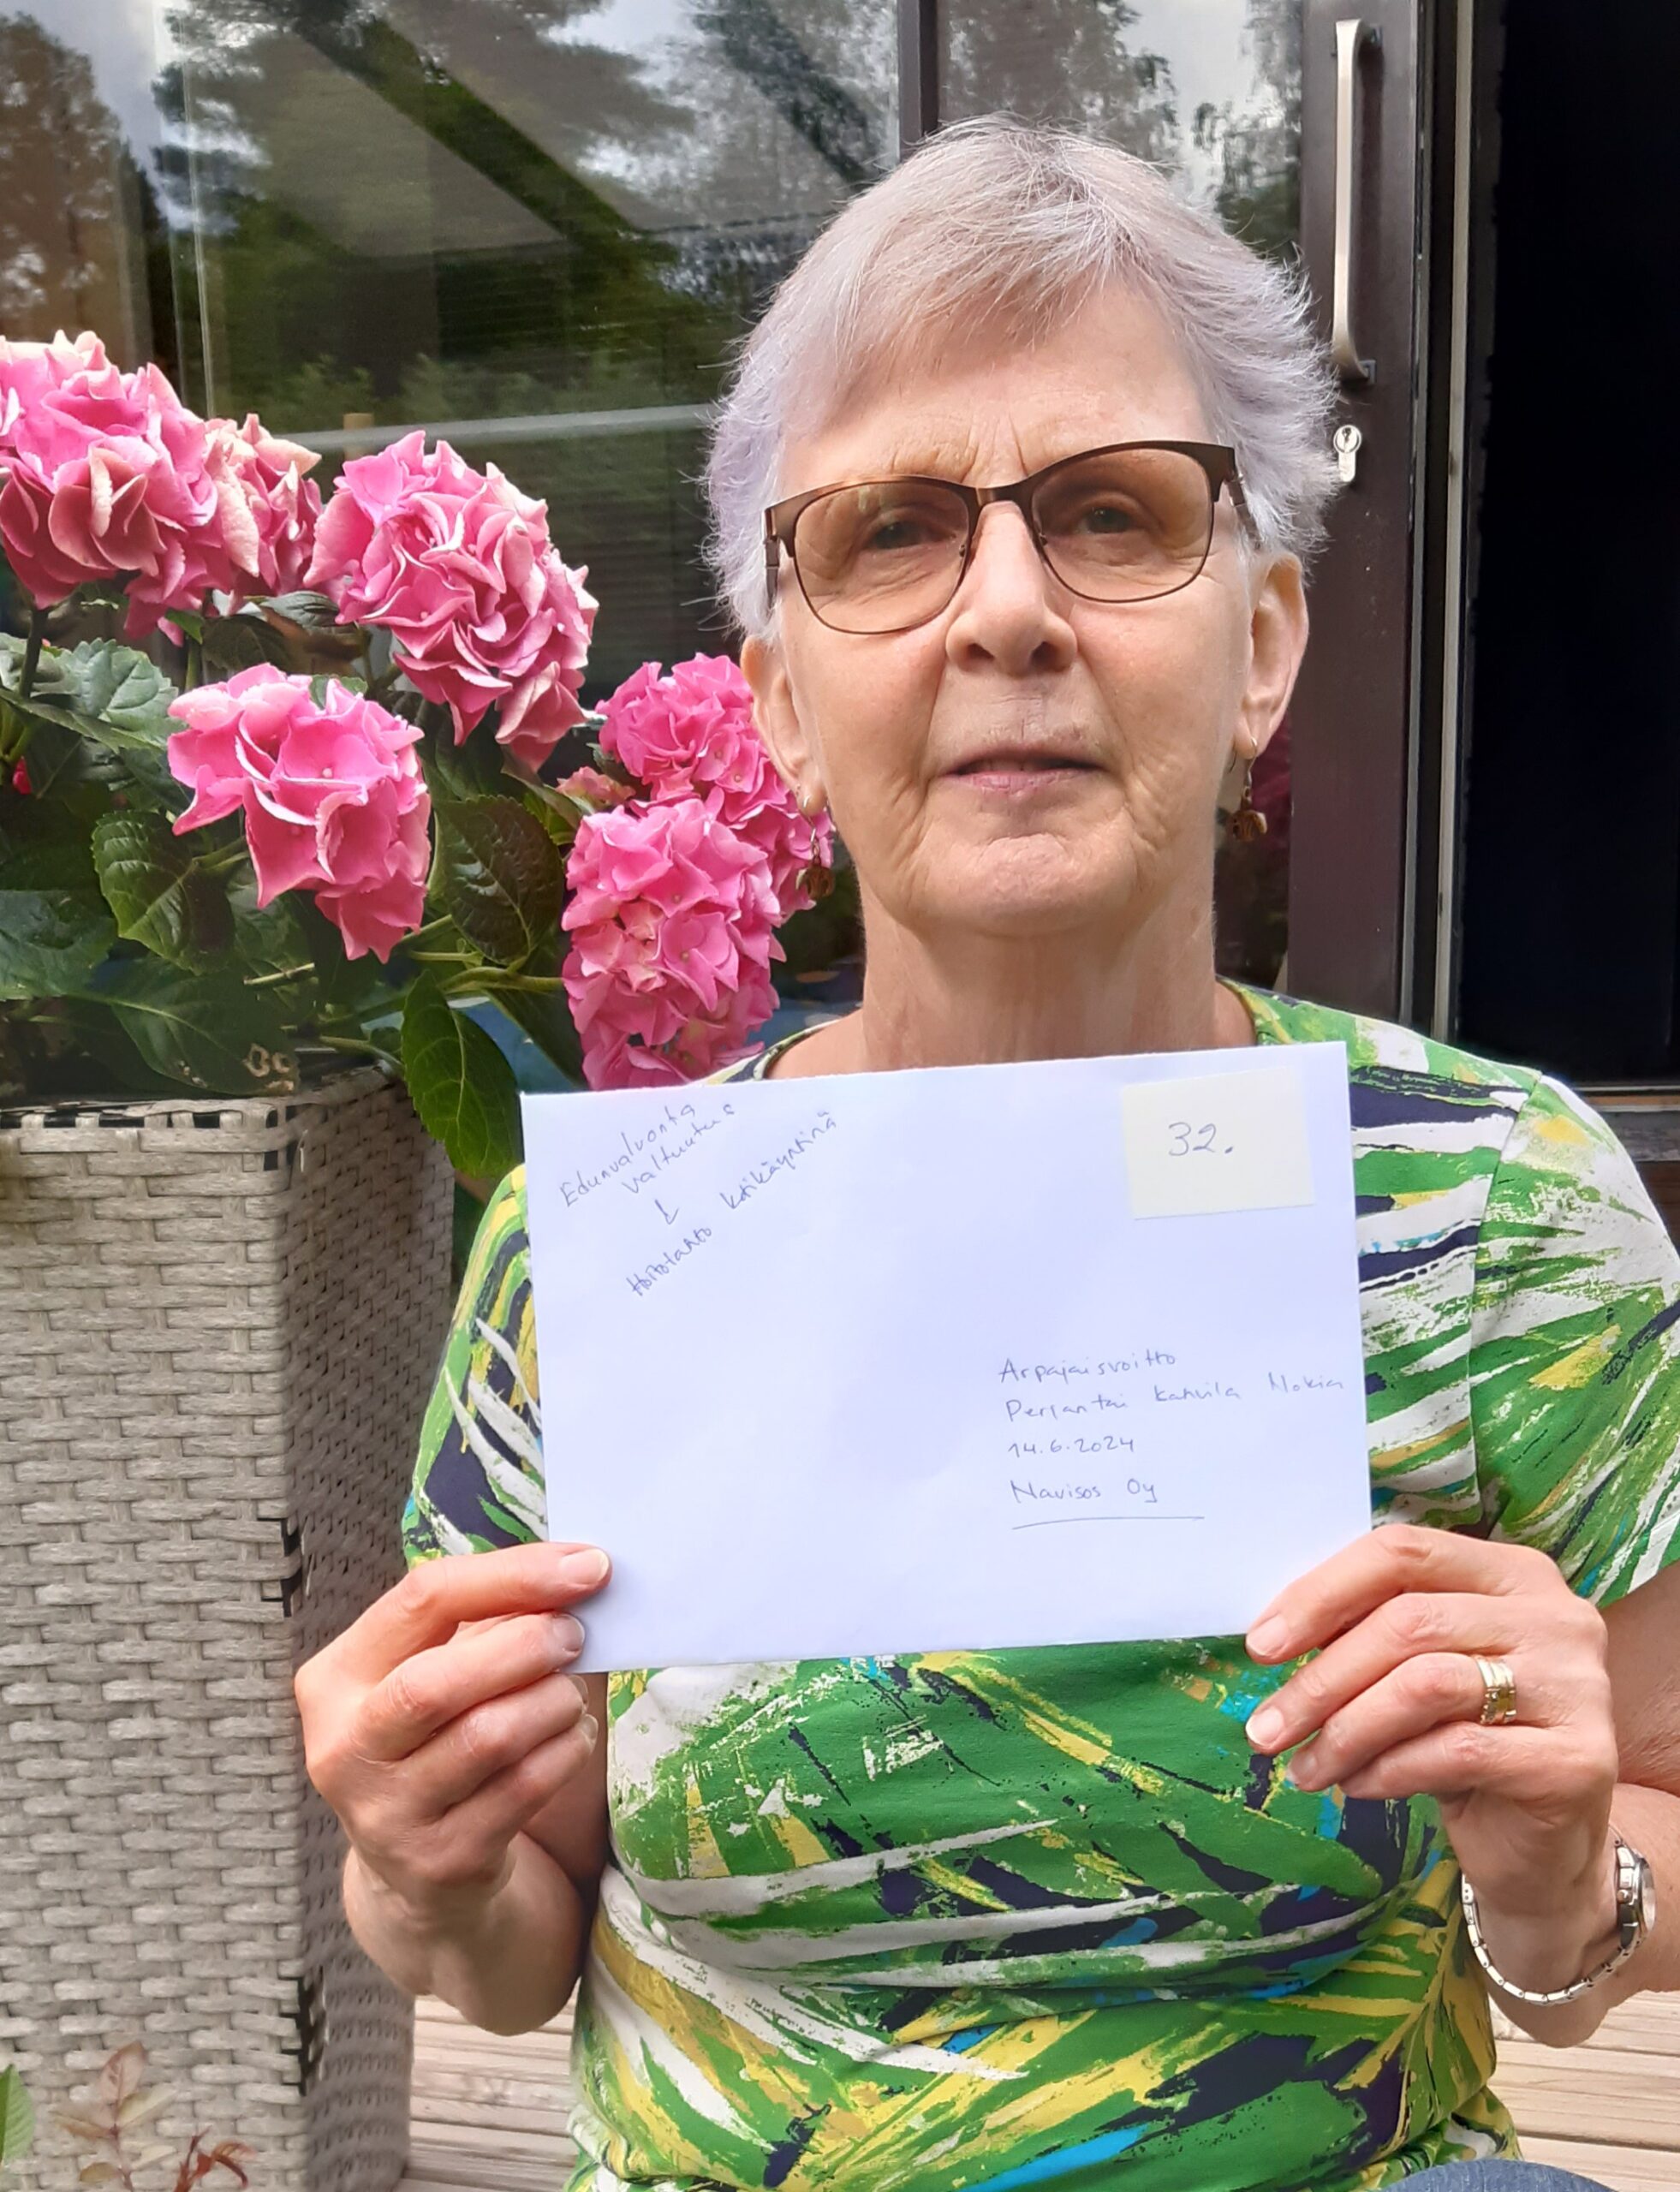 Edunvalvonta
valtuutus
↓
Hoitotahto kotikäyntinä
32.
Arpajaisvoitto
Perjantai Kahvila Nokia
14.6.2024
Navisos Oy